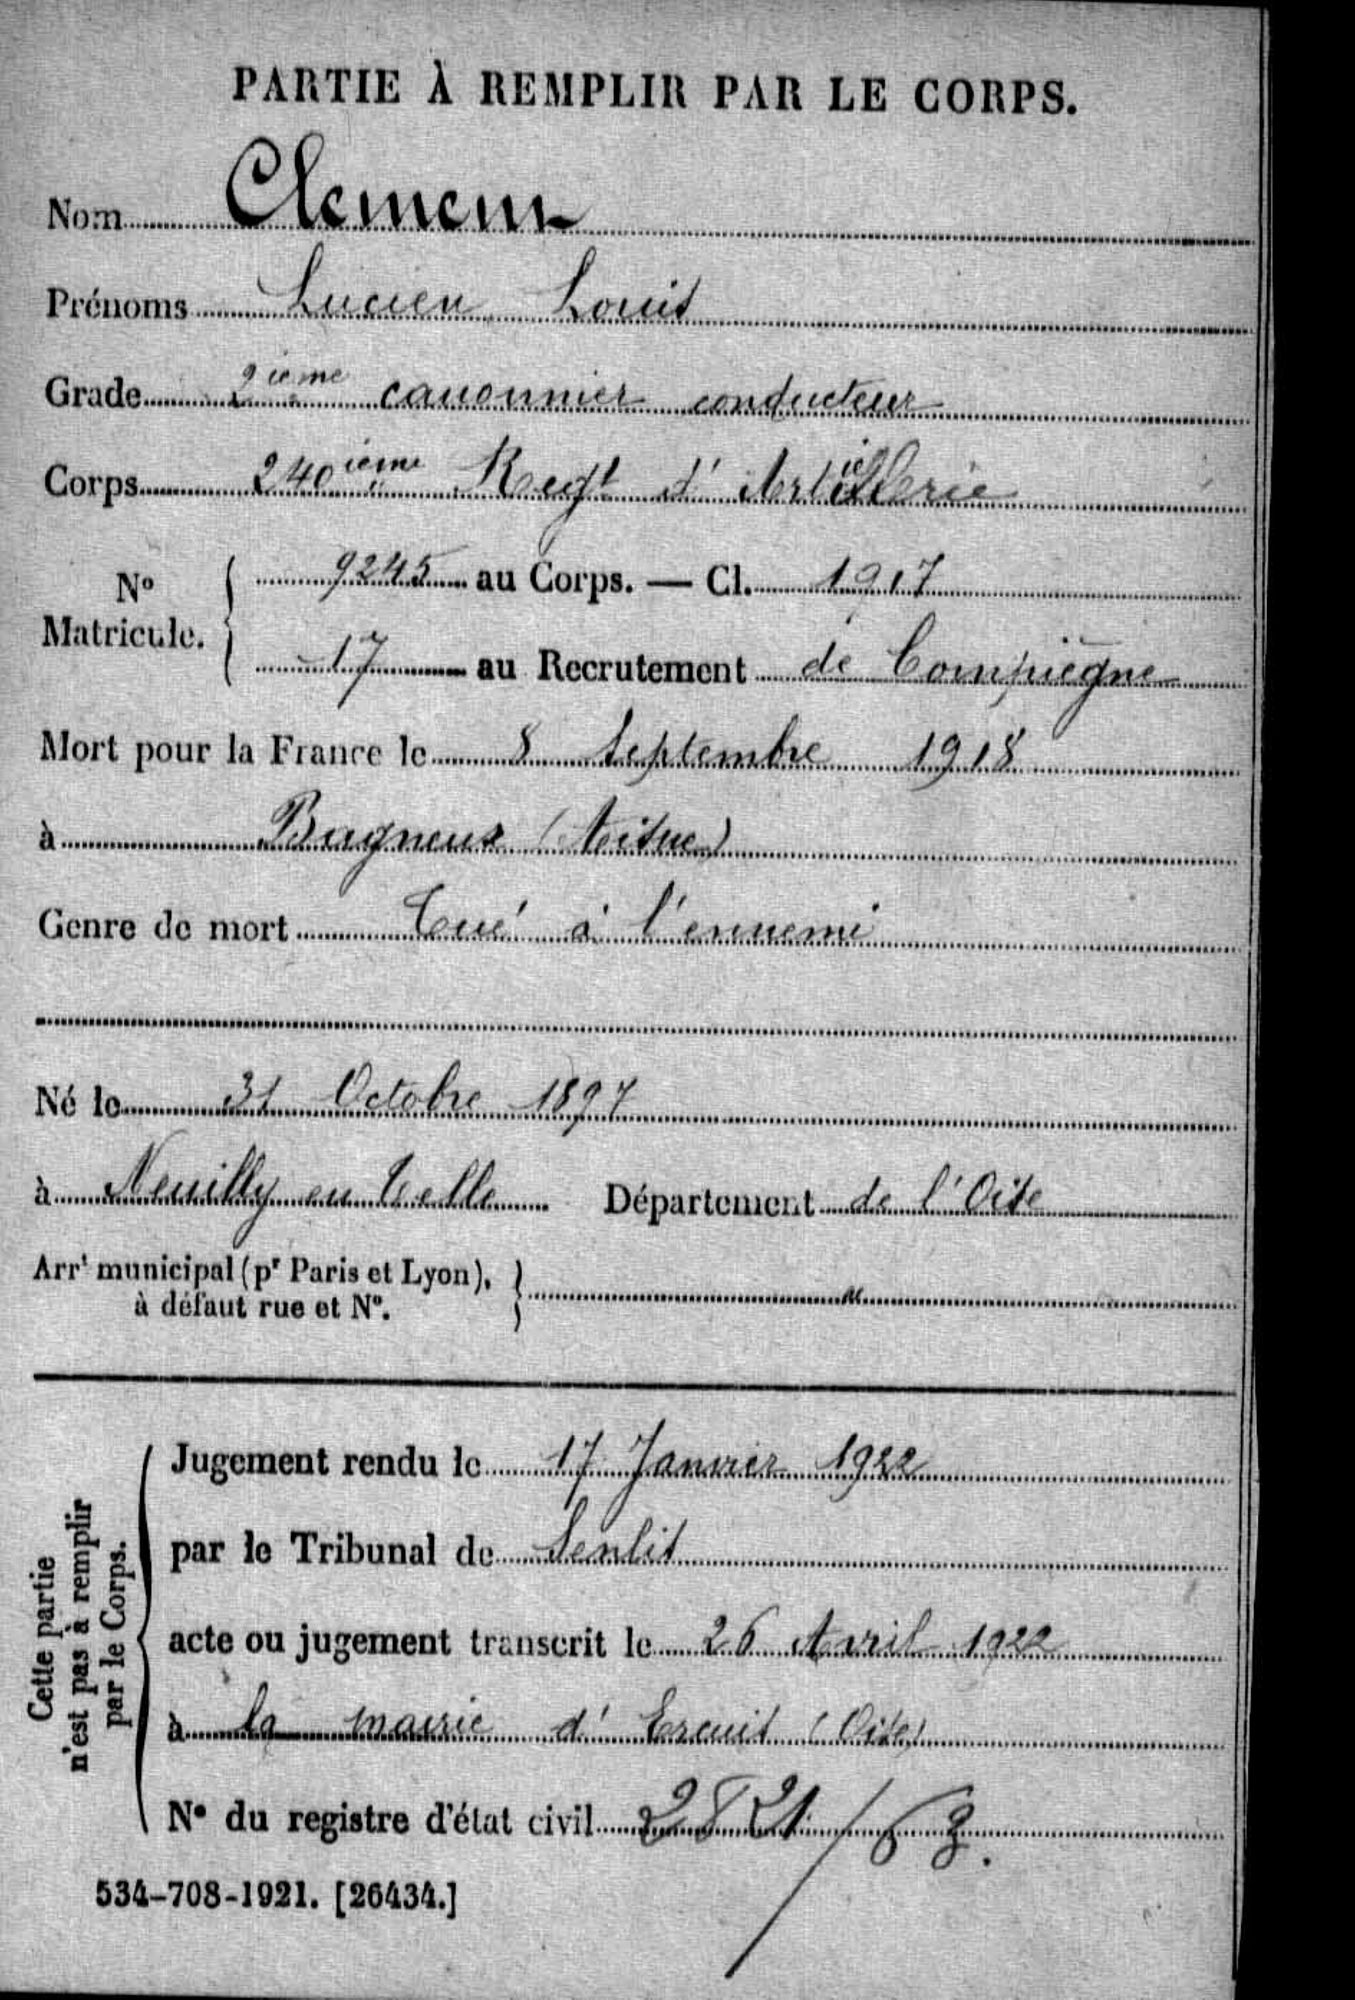 PARTIE À REMPLIR PAR LE CORPS.
Nom Clement
Prénoms Lucien Louis
Grade 2ième canonnier conducteur
Corps 240ième Regt d'Artillerie
No Matricule. { 9245 au Corps. — Cl. 1917
17 au Recrutement de Compiègne
Mort pour la France le 8 Septembre 1918
à Bagneux (Aisne)
Genre de mort Tué à l'ennemi
Né le 31 Octobre 1897
à Neuilly en Telle Département de l'Oise
Arrt municipal (pr Paris et Lyon), }
à défaut rue et No. "
Cette partie
n'est pas à remplir
par le Corps.
Jugement rendu le 17 Janvier 1922
par le Tribunal de Senlis
acte ou jugement transcrit le 26 Avril 1922
à la mairie d'Ercuis (Oise)
No du registre d'état civil 2821/63.
534-708-1921. [26434.]